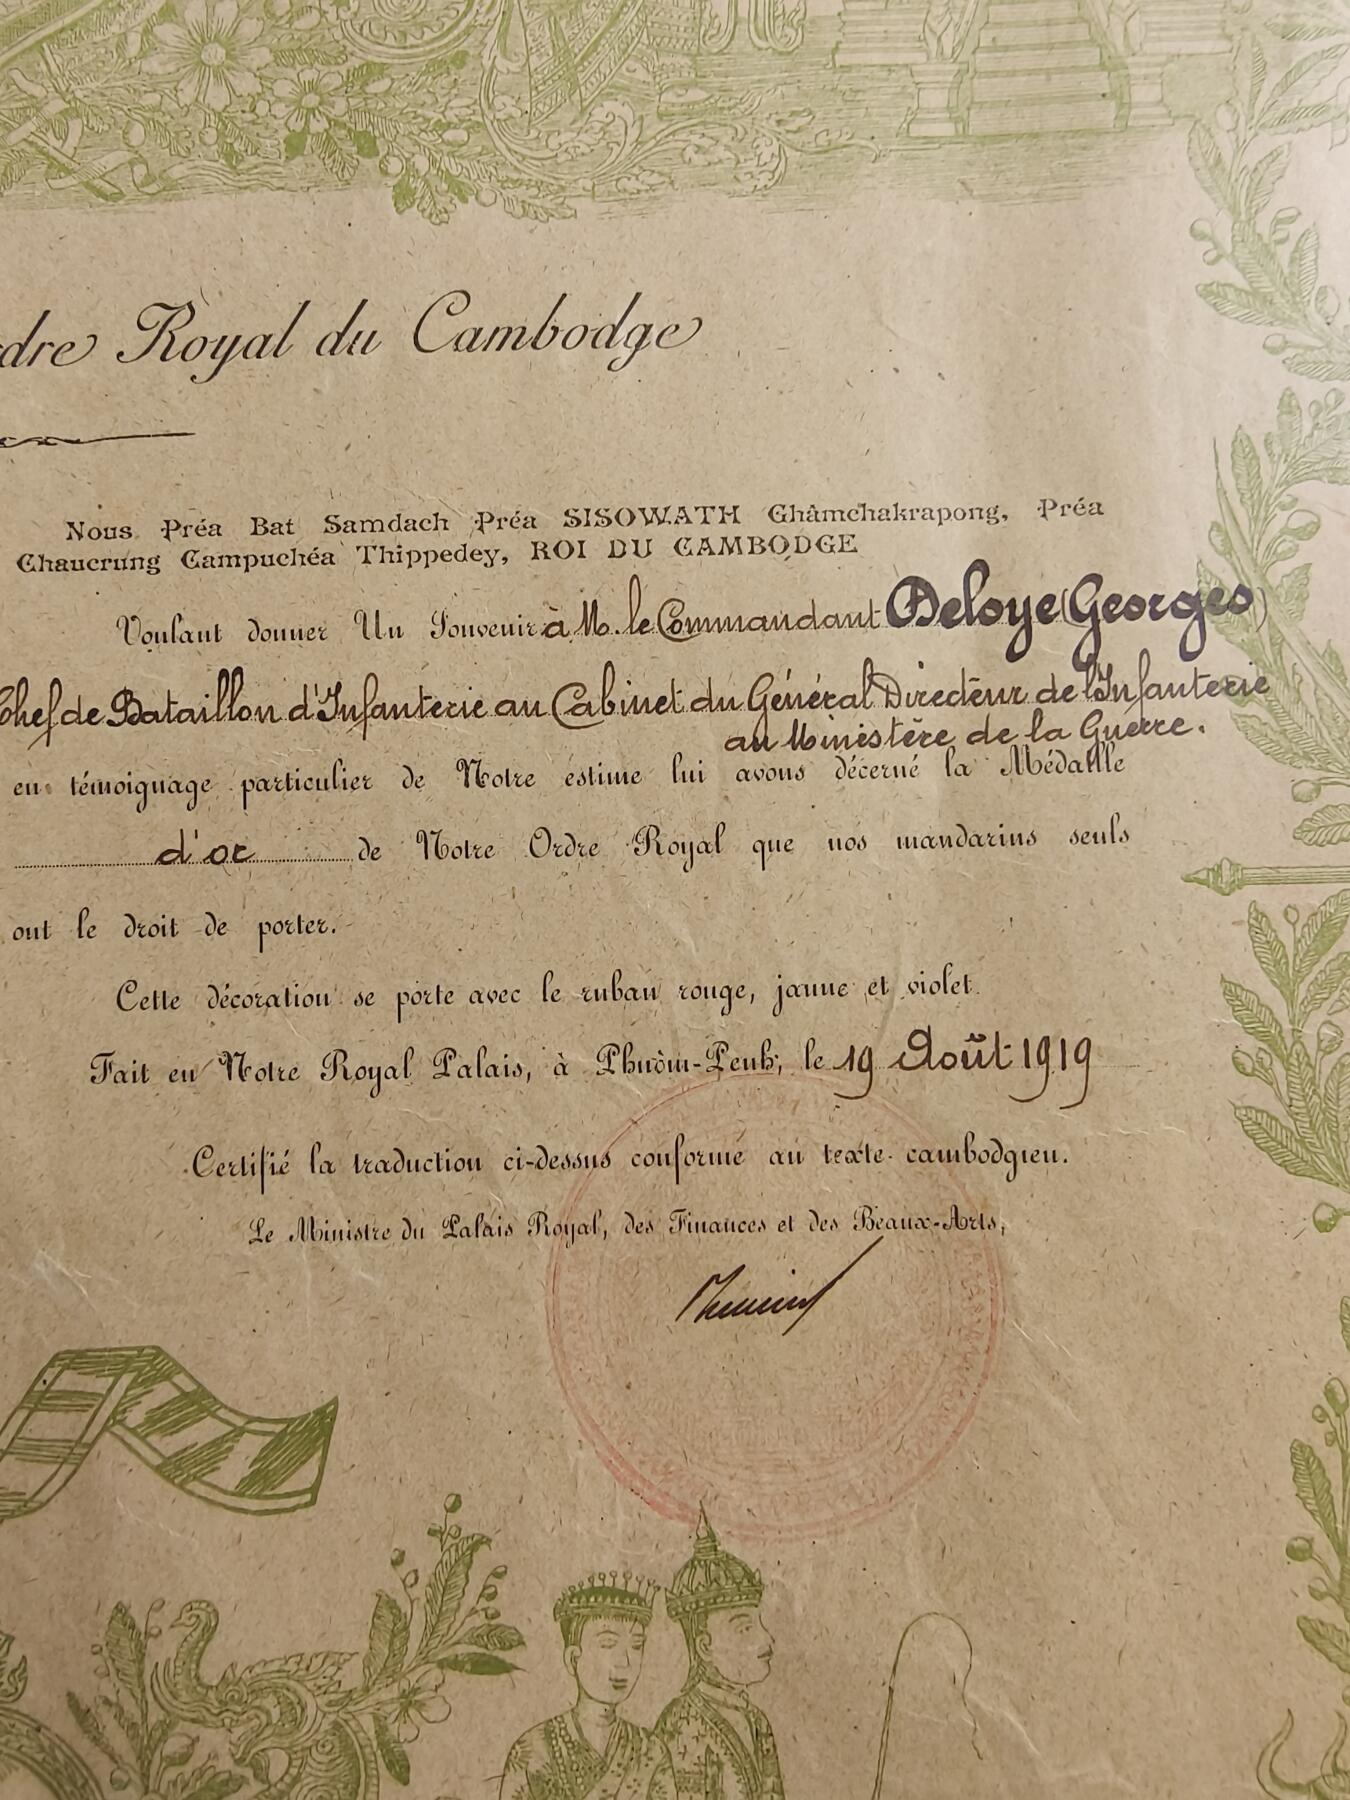 dre Royal du Cambodge
Nous Préa Bat Samdach Préa SISOWATH Chàmchakrapong, Préa
Chaucrung Campuchéa Thippedey, ROI DU CAMBODGE
Voulant donner Un Souvenir à M. le Commandant Deloye (Georges)
Chef de Bataillon d'Infanterie au Cabinet du Général Directeur de l'Infanterie
au Ministère de la Guerre.
en témoignage particulier de Notre estime lui avons décerné la Médaille
d'or de Notre Ordre Royal que nos mandarins seuls
ont le droit de porter.
Cette décoration se porte avec le ruban rouge, jaune et violet.
Fait en Notre Royal Palais, à Phnôm-Penh, le 19 Août 1919
Certifié la traduction ci-dessus conforme au texte cambodgien.
Le Ministre du Palais Royal, des Finances et des Beaux-Arts,